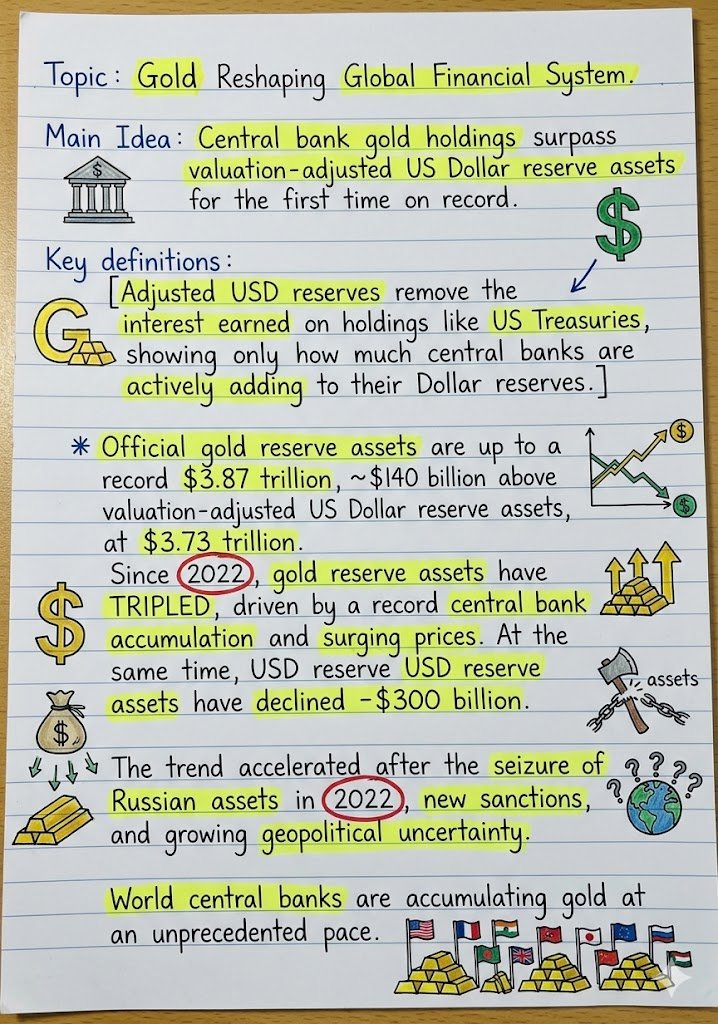 Topic: Gold Reshaping Global Financial System.
Main Idea: Central bank gold holdings surpass
valuation-adjusted US Dollar reserve assets
for the first time on record.
$
$
Key definitions:
[Adjusted USD reserves remove the
interest earned on holdings like US Treasuries,
showing only how much central banks are
actively adding to their Dollar reserves.]
G
* Official gold reserve assets are up to a
record $3.87 trillion, ~$140 billion above
valuation-adjusted US Dollar reserve assets,
at $3.73 trillion.
$
$
Since 2022, gold reserve assets have
TRIPLED, driven by a record central bank
accumulation and surging prices. At the
same time, USD reserve USD reserve
assets have declined -$300 billion.
$
assets
$
The trend accelerated after the seizure of
Russian assets in 2022, new sanctions,
and growing geopolitical uncertainty.
? ? ? ? ?
World central banks are accumulating gold at
an unprecedented pace.